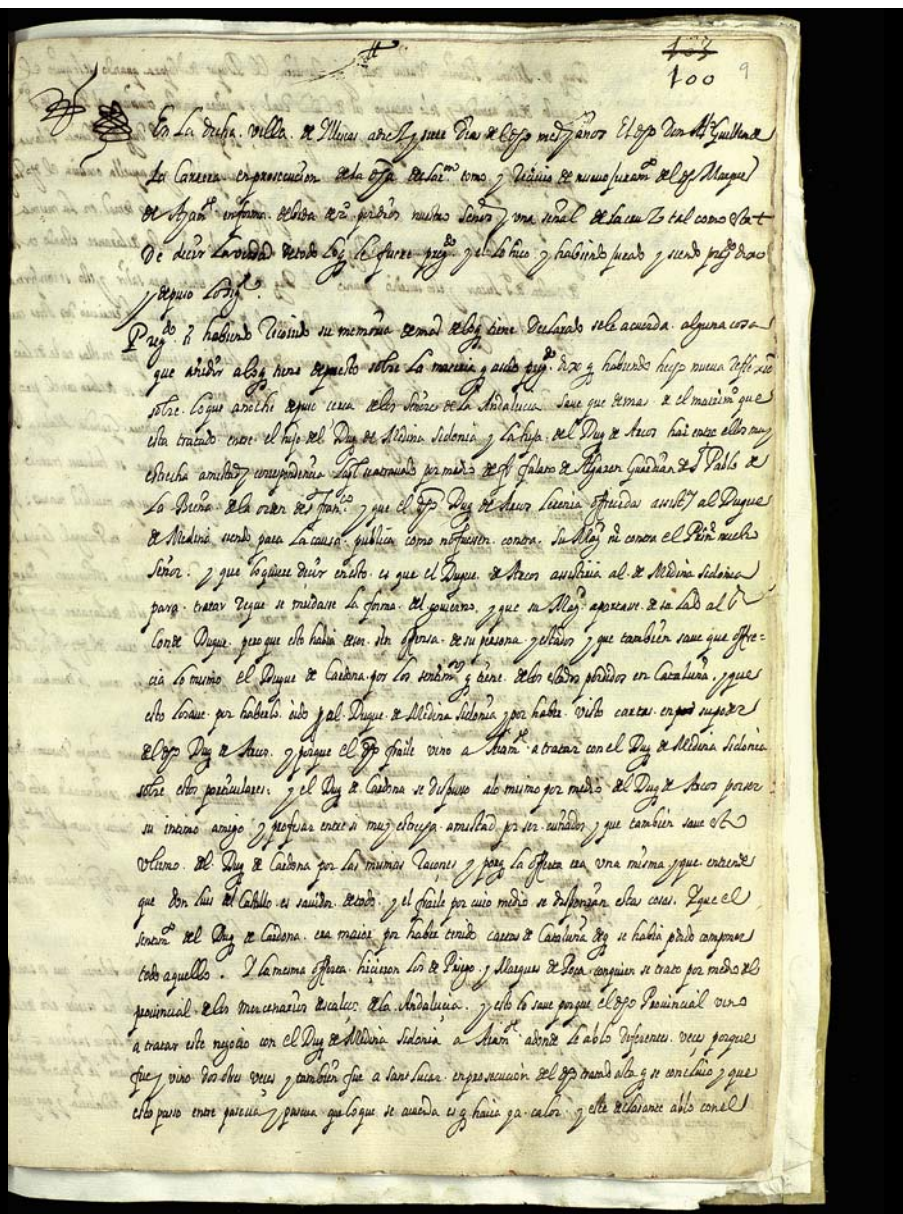 103
100 9
En La dicha villa de Illescas a diez y siete dias del dho mes y años El dho Don Alº Guillen de
La Carrera en prosecucion de la dha declarⁿ tomo y Reciuio de nueuo juramᵗᵒ del dho Marques
de Ayamᵗᵉ en forma debida de drº por dios nuestro Señor y una señal de la cruz tal como esta +
De decir La verdad de todo Lo q le fuere pregᵈᵒ y el Lo hico y habiendo jurado y siendo pregᵈᵒ dixo
y depuso Lo sigᵗᵉ
Pregᵈᵒ si habiendo Recorrido su memoria demas de lo q tiene Declarado se le acuerda alguna cosa
que añedir a lo q tiene depuesto sobre La materia q a sido pregᵈᵒ dixo q habiendo hecho nueua reflexio
sobre lo que anoche depuso cerca de los Señores de La Andalucia saue que demas de el matrimº que
esta tratado entre el hijo del Duq de Medina Sidonia y La hija del Duq de Arcos hai entre ellos muy
estrecha amistad y correspondencia por medio de fr fulano de Guardian de S Pablo de
La Breña de la orden de S franᶜᵒ y que el dho Duq de Arcos tenia offrecida assistᵃ al Duque
de Medina siendo para La causa publica como no fuesen contra Su Magᵈ ni contra el Prinᵉ nuestro
Señor y que lo quiere decir en esto es que el Duque de Arcos assistiria al de Medina Sidonia
para tratar de que se mudasse La forma del gouierno y que su Magᵈ apartase de su Lado al
Conde Duque pero que esto habia de ser sin offensa de su persona y estados y que tambien saue que offre=
cia lo mismo el Duque de Cardona por los sentimᵗᵒˢ q tiene de los estados perdidos en Cataluña y que
esto lo saue por haberlo oido al Duque de Medina Sidonia y por haber visto cartas en su poder
del dho Duq de Arcos y porque el dho fraile vino a Aiamᵗᵉ a tratar con el Duq de Medina Sidonia
sobre estos particulares y el Duq de Cardona se dispusso a lo mismo por medio del Duq de Arcos por ser
su intimo amigo y profesar entre si muy estrecha amistad por ser cuñados y que tambien saue esto
vltimo del Duq de Cardona por las mismas Racones y porq La offerta era vna misma y que entiende
que don Luis del Castillo es sauidor de todo y el fraile por cuio medio se disponian estas cosas Y que el
sentimᵗᵒ del Duq de Cardona era maior por haber tenido cartas de Cataluña de q se habia podido componer
todo aquello. Y La mesma offerta hicieron Los de Priego y Marques de con quien se trato por medio del
prouincial de los mercenarios descalcos de La Andalucia y esto lo saue porque el dho Prouincial vino
a tratar este negocio con el Duq de Medina Sidonia a Aiamᵗᵉ adonde le ablo diferentes veces porque
fue y vino dos o tres veces y tambien fue a Sant Lucar en prosecucion del dho tratado asta q se concluio y que
esto passo entre pascua y pascua que lo que se acuerda es q hacia ya calor y este declarante ablo con el